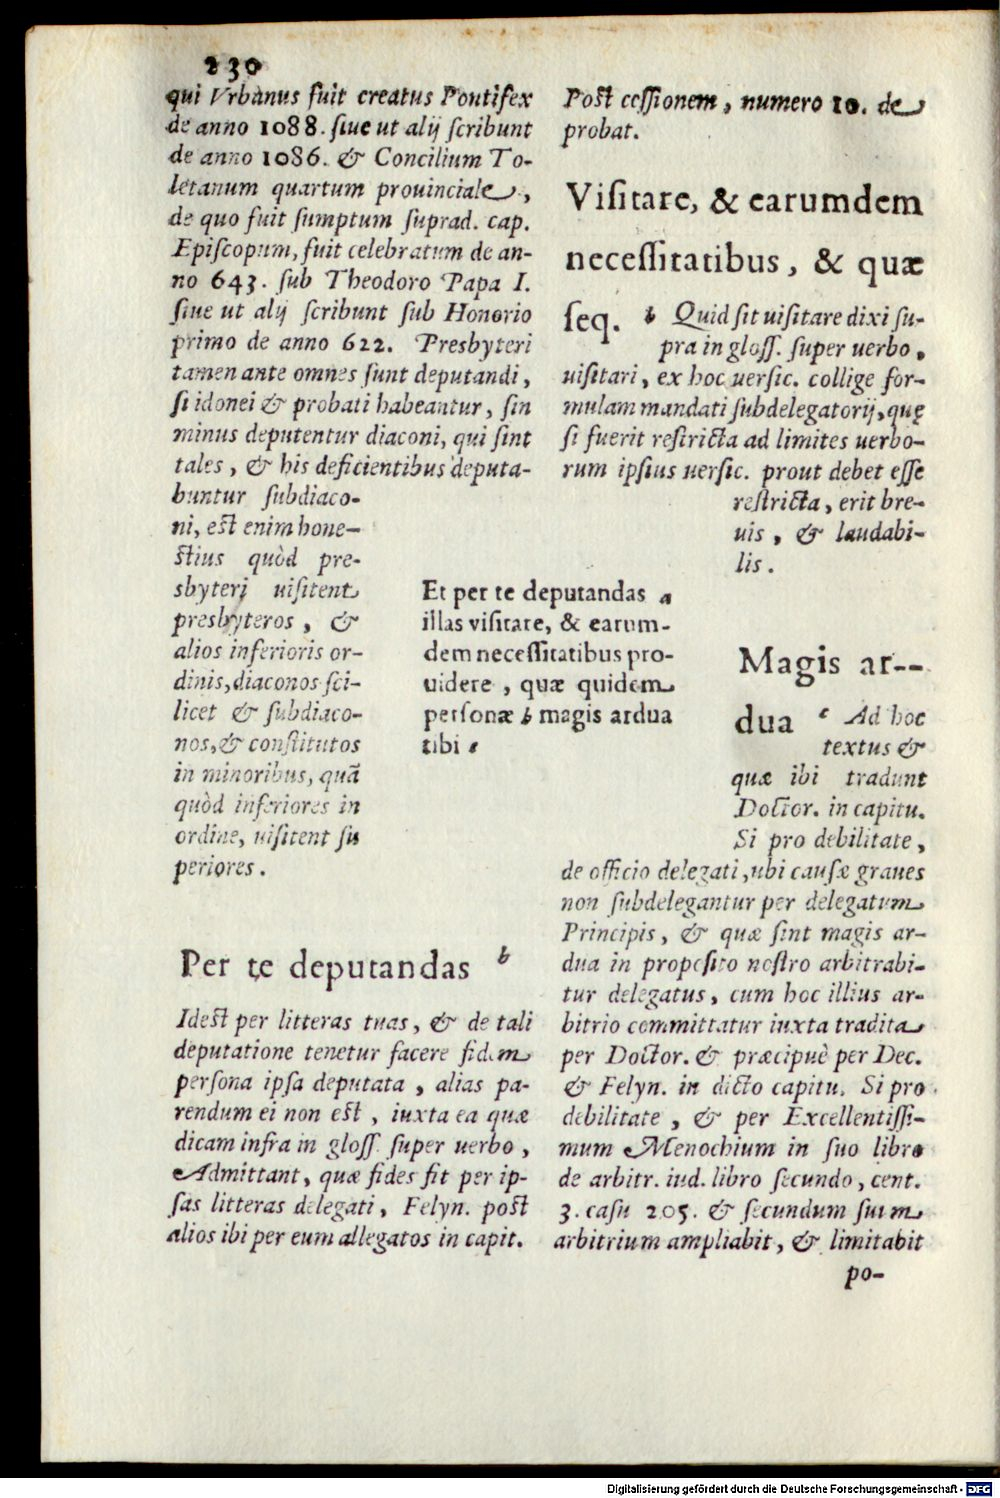 230
qui Vrbanus fuit creatus Pontifex
de anno 1088. siue ut alij scribunt
de anno 1086. & Concilium To-
letanum quartum prouinciale,
de quo fuit sumptum suprad. cap.
Episcopum, fuit celebratum de an-
no 643. sub Theodoro Papa I.
siue ut alij scribunt sub Honorio
primo de anno 622. Presbyteri
tamen ante omnes sunt deputandi,
si idonei & probati habeantur, sin
minus deputentur diaconi, qui sint
tales, & his deficientibus deputa-
buntur subdiaco-
ni, est enim hone-
stius quòd pre-
sbyteri uisitent
presbyteros, &
alios inferioris or-
dinis, diaconos sci-
licet & subdiaco-
nos, & constitutos
in minoribus, quā
quòd inferiores in
ordine, uisitent su
periores.
Per te deputandas b
Idest per litteras tuas, & de tali
deputatione tenetur facere fidem
persona ipsa deputata, alias pa-
rendum ei non est, iuxta ea quæ
dicam infra in gloss. super uerbo,
Admittant, quæ fides fit per ip-
sas litteras delegati, Felyn. post
alios ibi per eum allegatos in capit.
Et per te deputandas a
illas visitare, & earum-
dem necessitatibus pro-
uidere, quæ quidem
personæ b magis ardua
tibi c
Post cessionem, numero 10. de
probat.
Visitare, & earumdem
necessitatibus, & quæ
seq. b Quid sit uisitare dixi su-
pra in gloss. super uerbo,
uisitari, ex hoc uersic. collige for-
mulam mandati subdelegatorij, quę
si fuerit restricta ad limites uerbo-
rum ipsius uersic. prout debet esse
restricta, erit bre-
uis, & laudabi-
lis.
Magis ar--
dua c Ad hoc
textus &
quæ ibi tradunt
Doctor. in capitu.
Si pro debilitate,
de officio delegati, ubi causæ graues
non subdelegantur per delegatum
Principis, & quæ sint magis ar-
dua in proposito nostro arbitrabi-
tur delegatus, cum hoc illius ar-
bitrio committatur iuxta tradita
per Doctor. & præcipuè per Dec.
& Felyn. in dicto capitu. Si pro
debilitate, & per Excellentissi-
mum Menochium in suo libro
de arbitr. iud. libro secundo, cent.
3. casu 205. & secundum suum
arbitrium ampliabit, & limitabit
po-
Digitalisierung gefördert durch die Deutsche Forschungsgemeinschaft - DFG